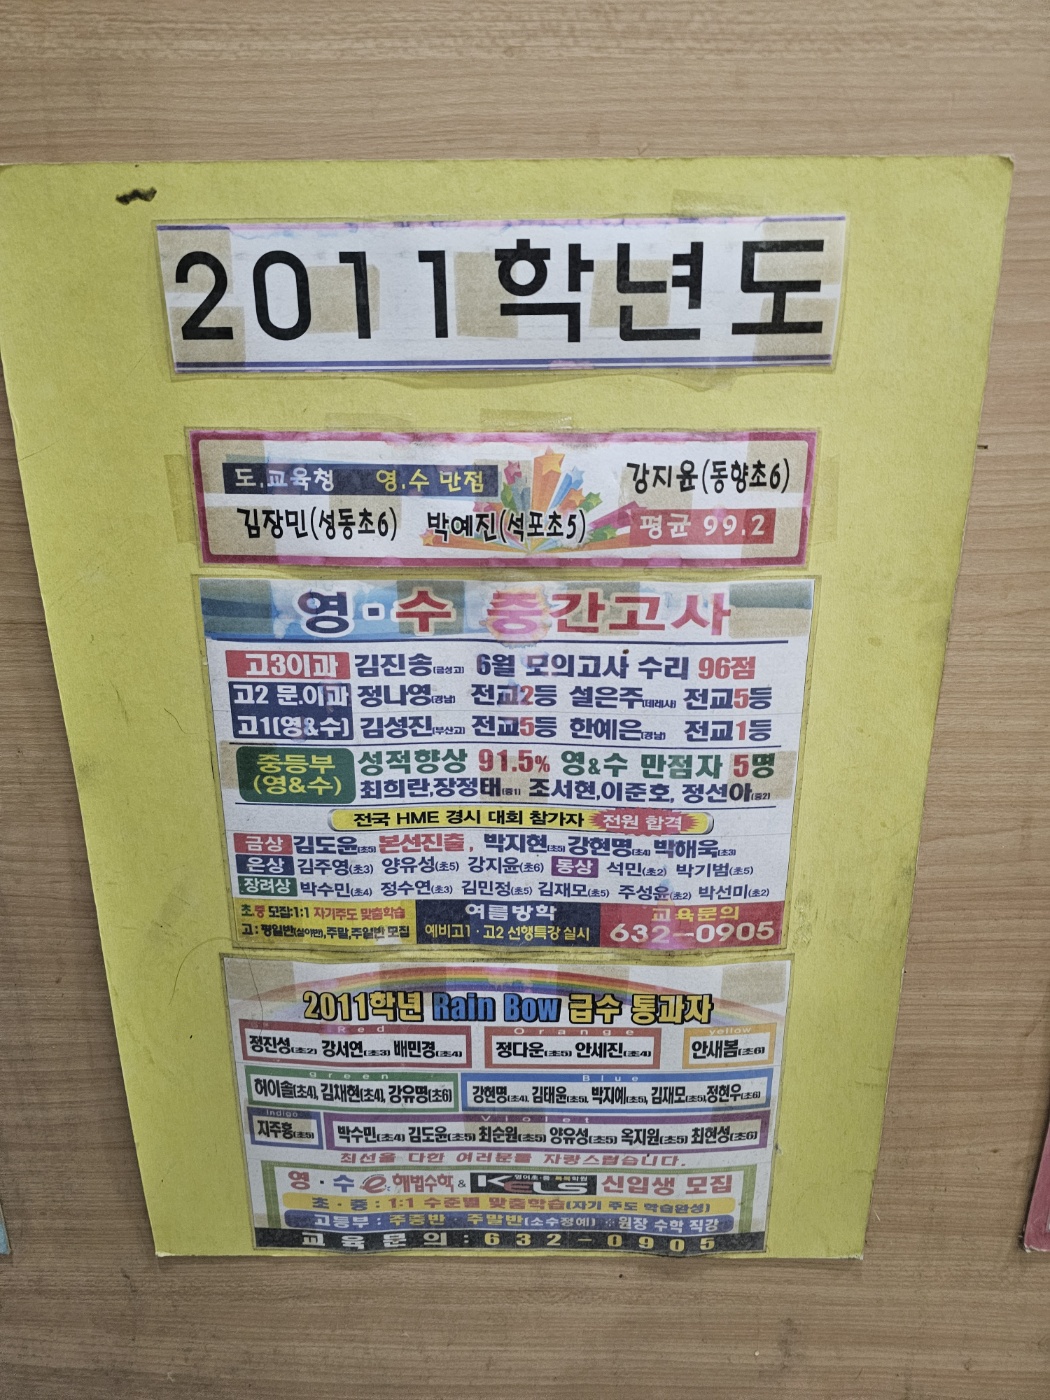 2011학년도
도.교육청 영.수 만점 강지윤(동향초6)
김장민(성동초6) 박예진(석포초5) 평균 99.2
영·수 중간고사
고3이과 김진송(금성고) 6월 모의고사 수리 96점
고2 문.이과 정나영(경남) 전교2등 설은주(데레사) 전교5등
고1(영&수) 김성진(부산고) 전교5등 한예은(경남) 전교1등
중등부 성적향상 91.5% 영&수 만점자 5명
(영&수) 최희란,장정태(중1) 조서현,이준호, 정선아(중2)
전국 HME 경시 대회 참가자 전원 합격
금상 김도윤(초5) 본선진출, 박지현(초5) 강현명(초4) 박해욱(초3)
은상 김주영(초3) 양유성(초5) 강지윤(초6) 동상 석민(초2) 박기범(초5)
장려상 박수민(초4) 정수연(초3) 김민정(초5) 김재모(초5) 주성윤(초2) 박선미(초2)
초.중 모집:1:1 자기주도 맞춤학습 여름방학 교육문의
고 : 평일반(심야반),주말,주일반 모집 예비고1·고2 선행특강 실시 632-0905
2011학년 Rain Bow 급수 통과자
Red Orange yellow
정진성(초2) 강서연(초3) 배민경(초4) 정다운(초5) 안세진(초4) 안새봄(초6)
green Blue
허이솔(초4), 김채현(초4), 강유명(초6) 강현명(초4), 김태윤(초5), 박지예(초5), 김재모(초5),정현우(초6)
Indigo Violet
지주홍(초5) 박수민(초4) 김도윤(초5) 최순원(초5) 양유성(초5) 옥지원(초5) 최현성(초6)
최선을 다한 여러분들 자랑스럽습니다.
영·수 e 해법수학 & KELS 신입생 모집
초·중 : 1:1 수준별 맞춤학습(자기 주도 학습완성)
고등부 : 주중반·주말반(소수정예) ※원장 수학 직강
교육문의:632-0905